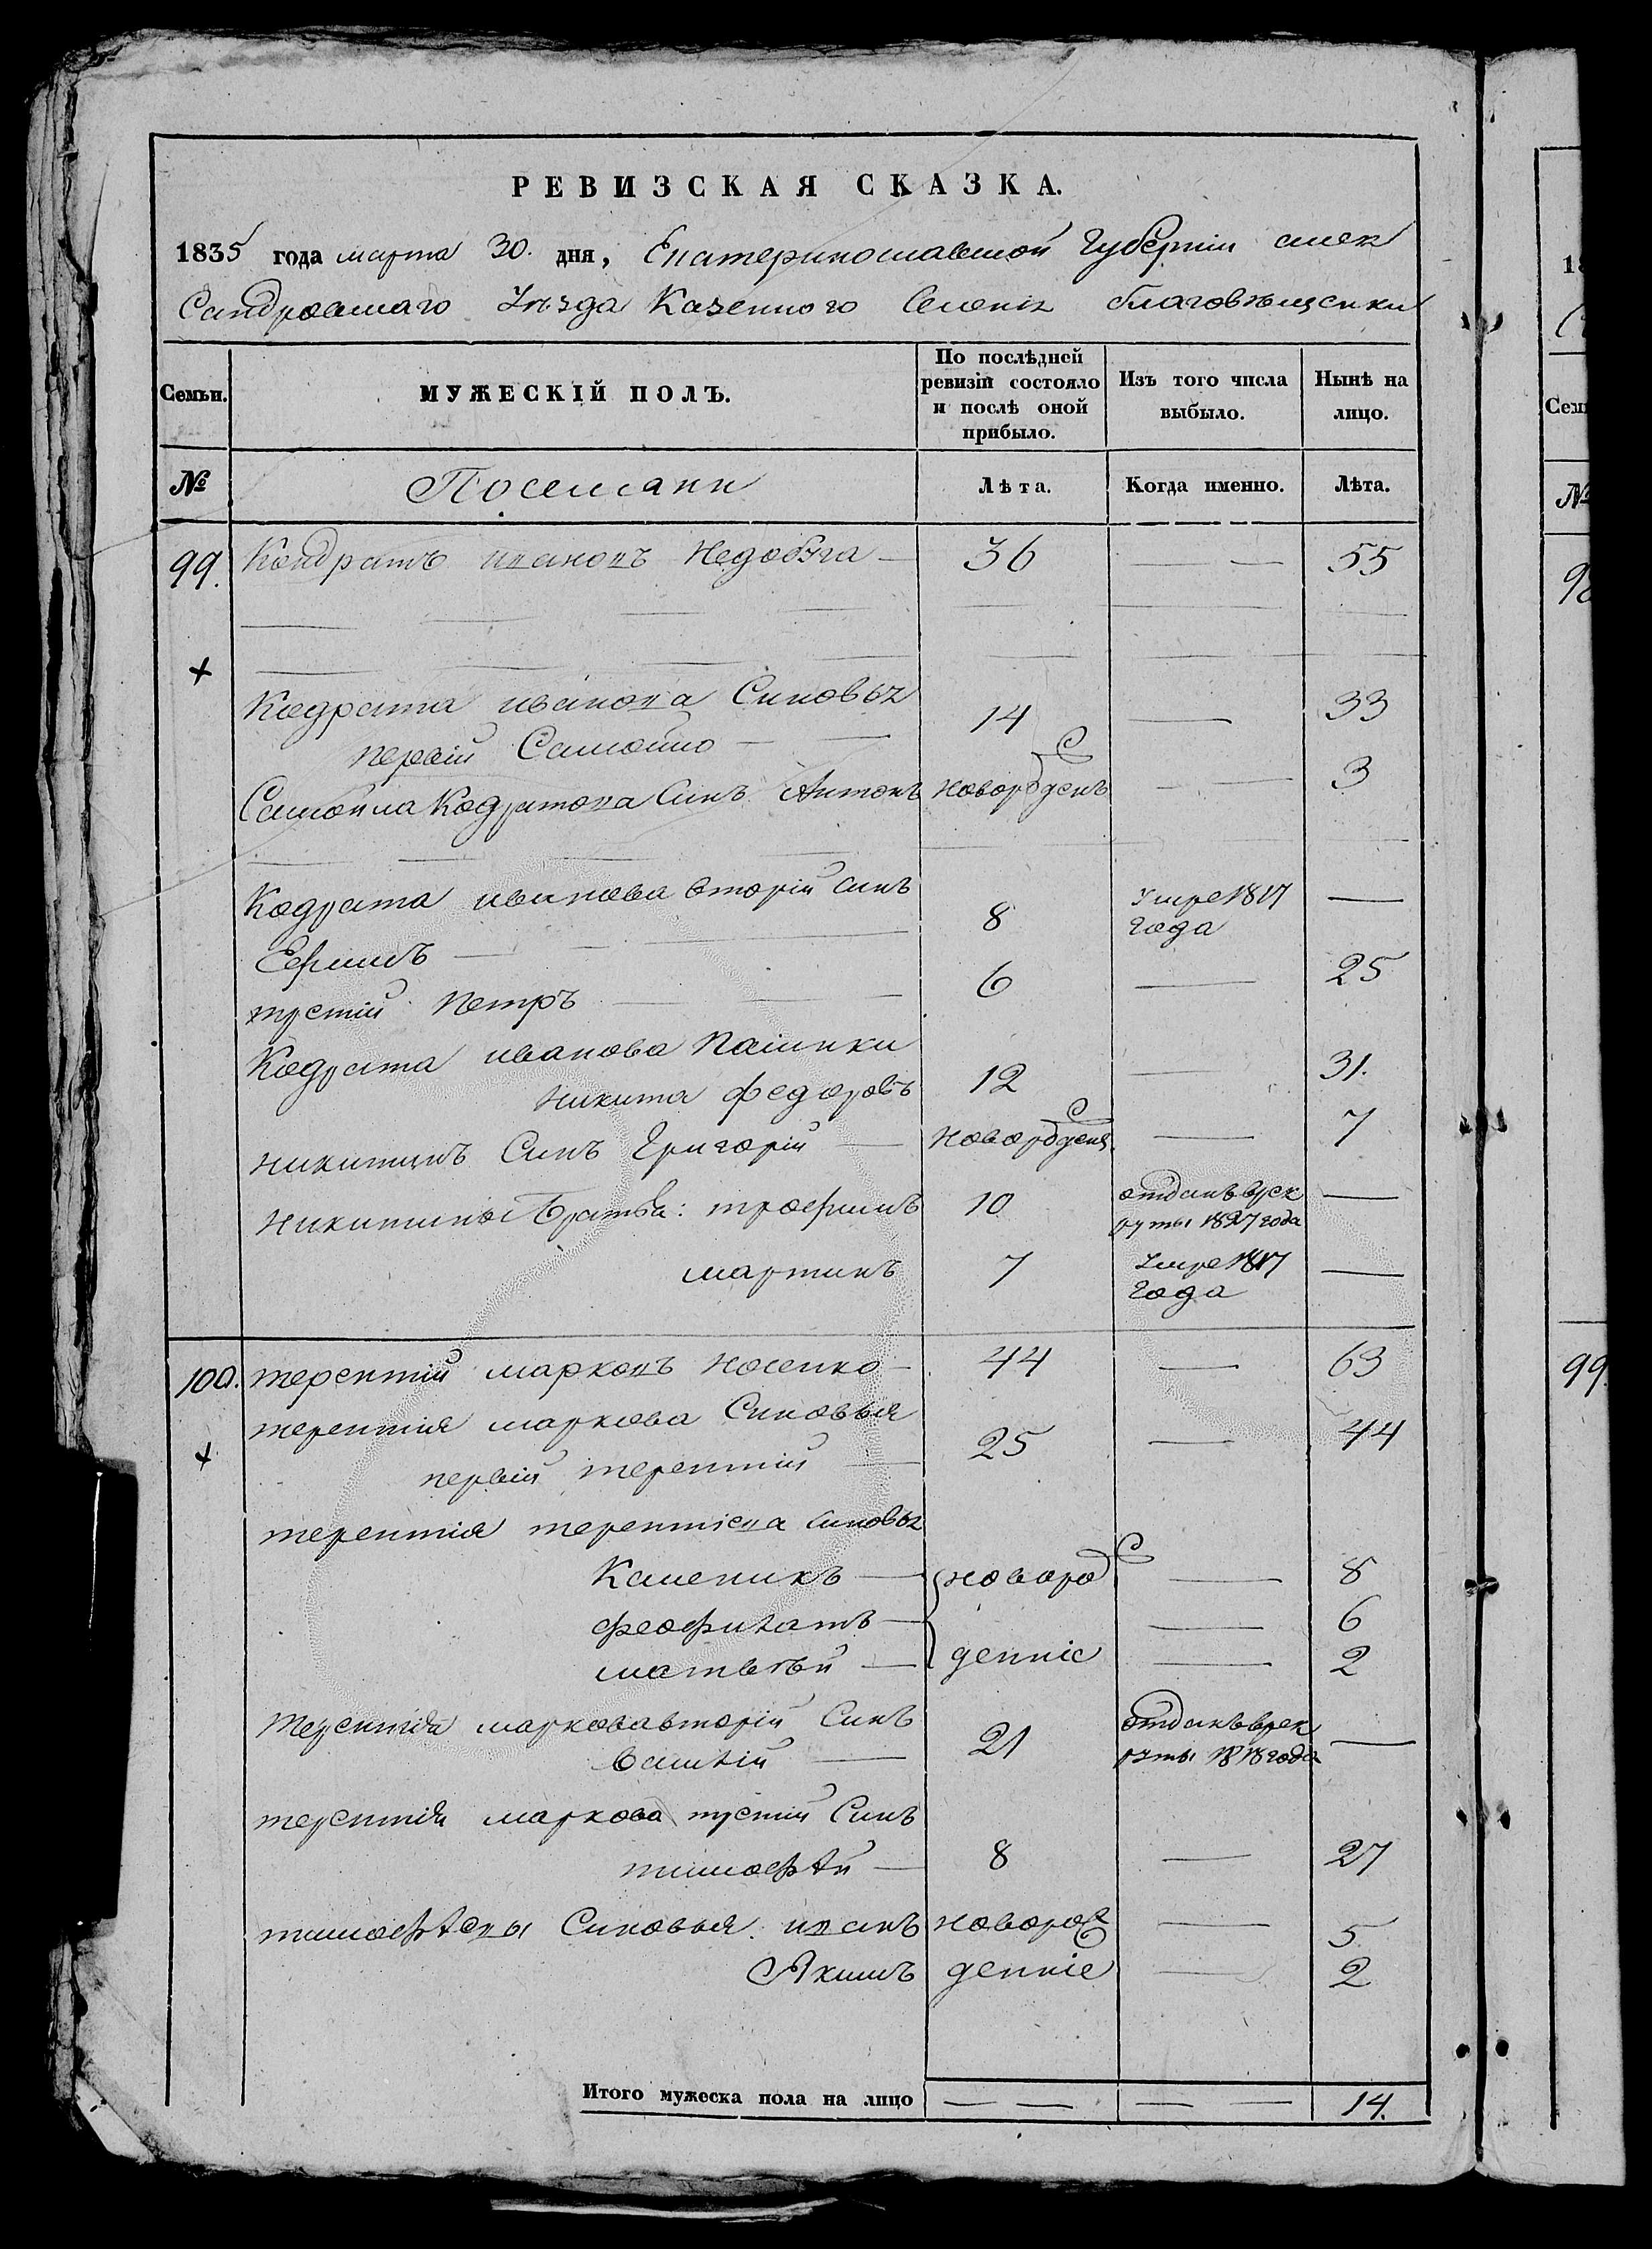 РЕВИЗСКАЯ СКАЗКА.
1835 года марта 30. дня, Екатеринославской Губернии алек
сандровскаго Уѣзда Казенного Селенія благовѣщенки
Семьи. МУЖЕСКІЙ ПОЛЪ. По послѣдней ревизіи состояло и послѣ оной прибыло. Изъ того числа выбыло. Нынѣ на лицо.
№ Поселяни Лѣта. Когда именно. Лѣта.
99. Кондратъ ивановъ Недобуга 36 — 55
Кодрата иванова Синовья
первій Самойло 14 — 33
Самойла Кодратова Синъ Антонъ новорожденъ — 3
Кодрата иванова вторій синъ
Ефимъ 8 Умре 1817 года —
третій Петръ 6 — 25
Кодрата иванова
никита федоровъ 12 — 31.
никитинъ Синъ Григорій новорожденъ. — 7
никитины Братья: трофимъ 10 отданъ врек
руты 1827 года —
мартинъ 7 Умре 1817 года —
100. терентій марковъ Носенко 44 — 63
терентія маркова Синовья
первій терентій 25 — 44
терентія терентіева синовья
Каленикъ новорож — 8
феофилатъ — 6
матвѣй денніе — 2
Терентія маркова вторій Синъ
василій 21 отданъ врек
руты 1818 года —
терентія маркова третій Синъ
тимофѣй 8 — 27
тимофѣевы Синовья. иванъ новорож — 5
Якимъ денніе — 2
Итого мужеска пола на лицо — — — — 14.
1
Сем
№
9
99